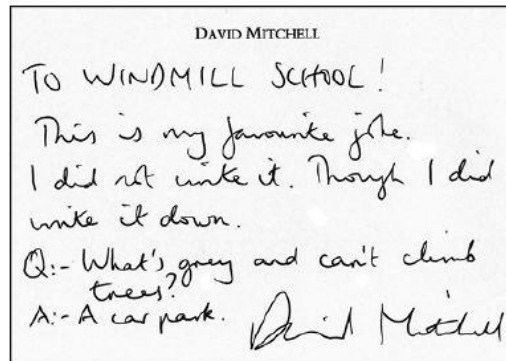 DAVID MITCHELL
TO WINDMILL SCHOOL!
This is my favourite joke.
I did not write it. Though I did
write it down.
Q:- What's grey and can't climb
trees?
A:- A car park.
David Mitchell